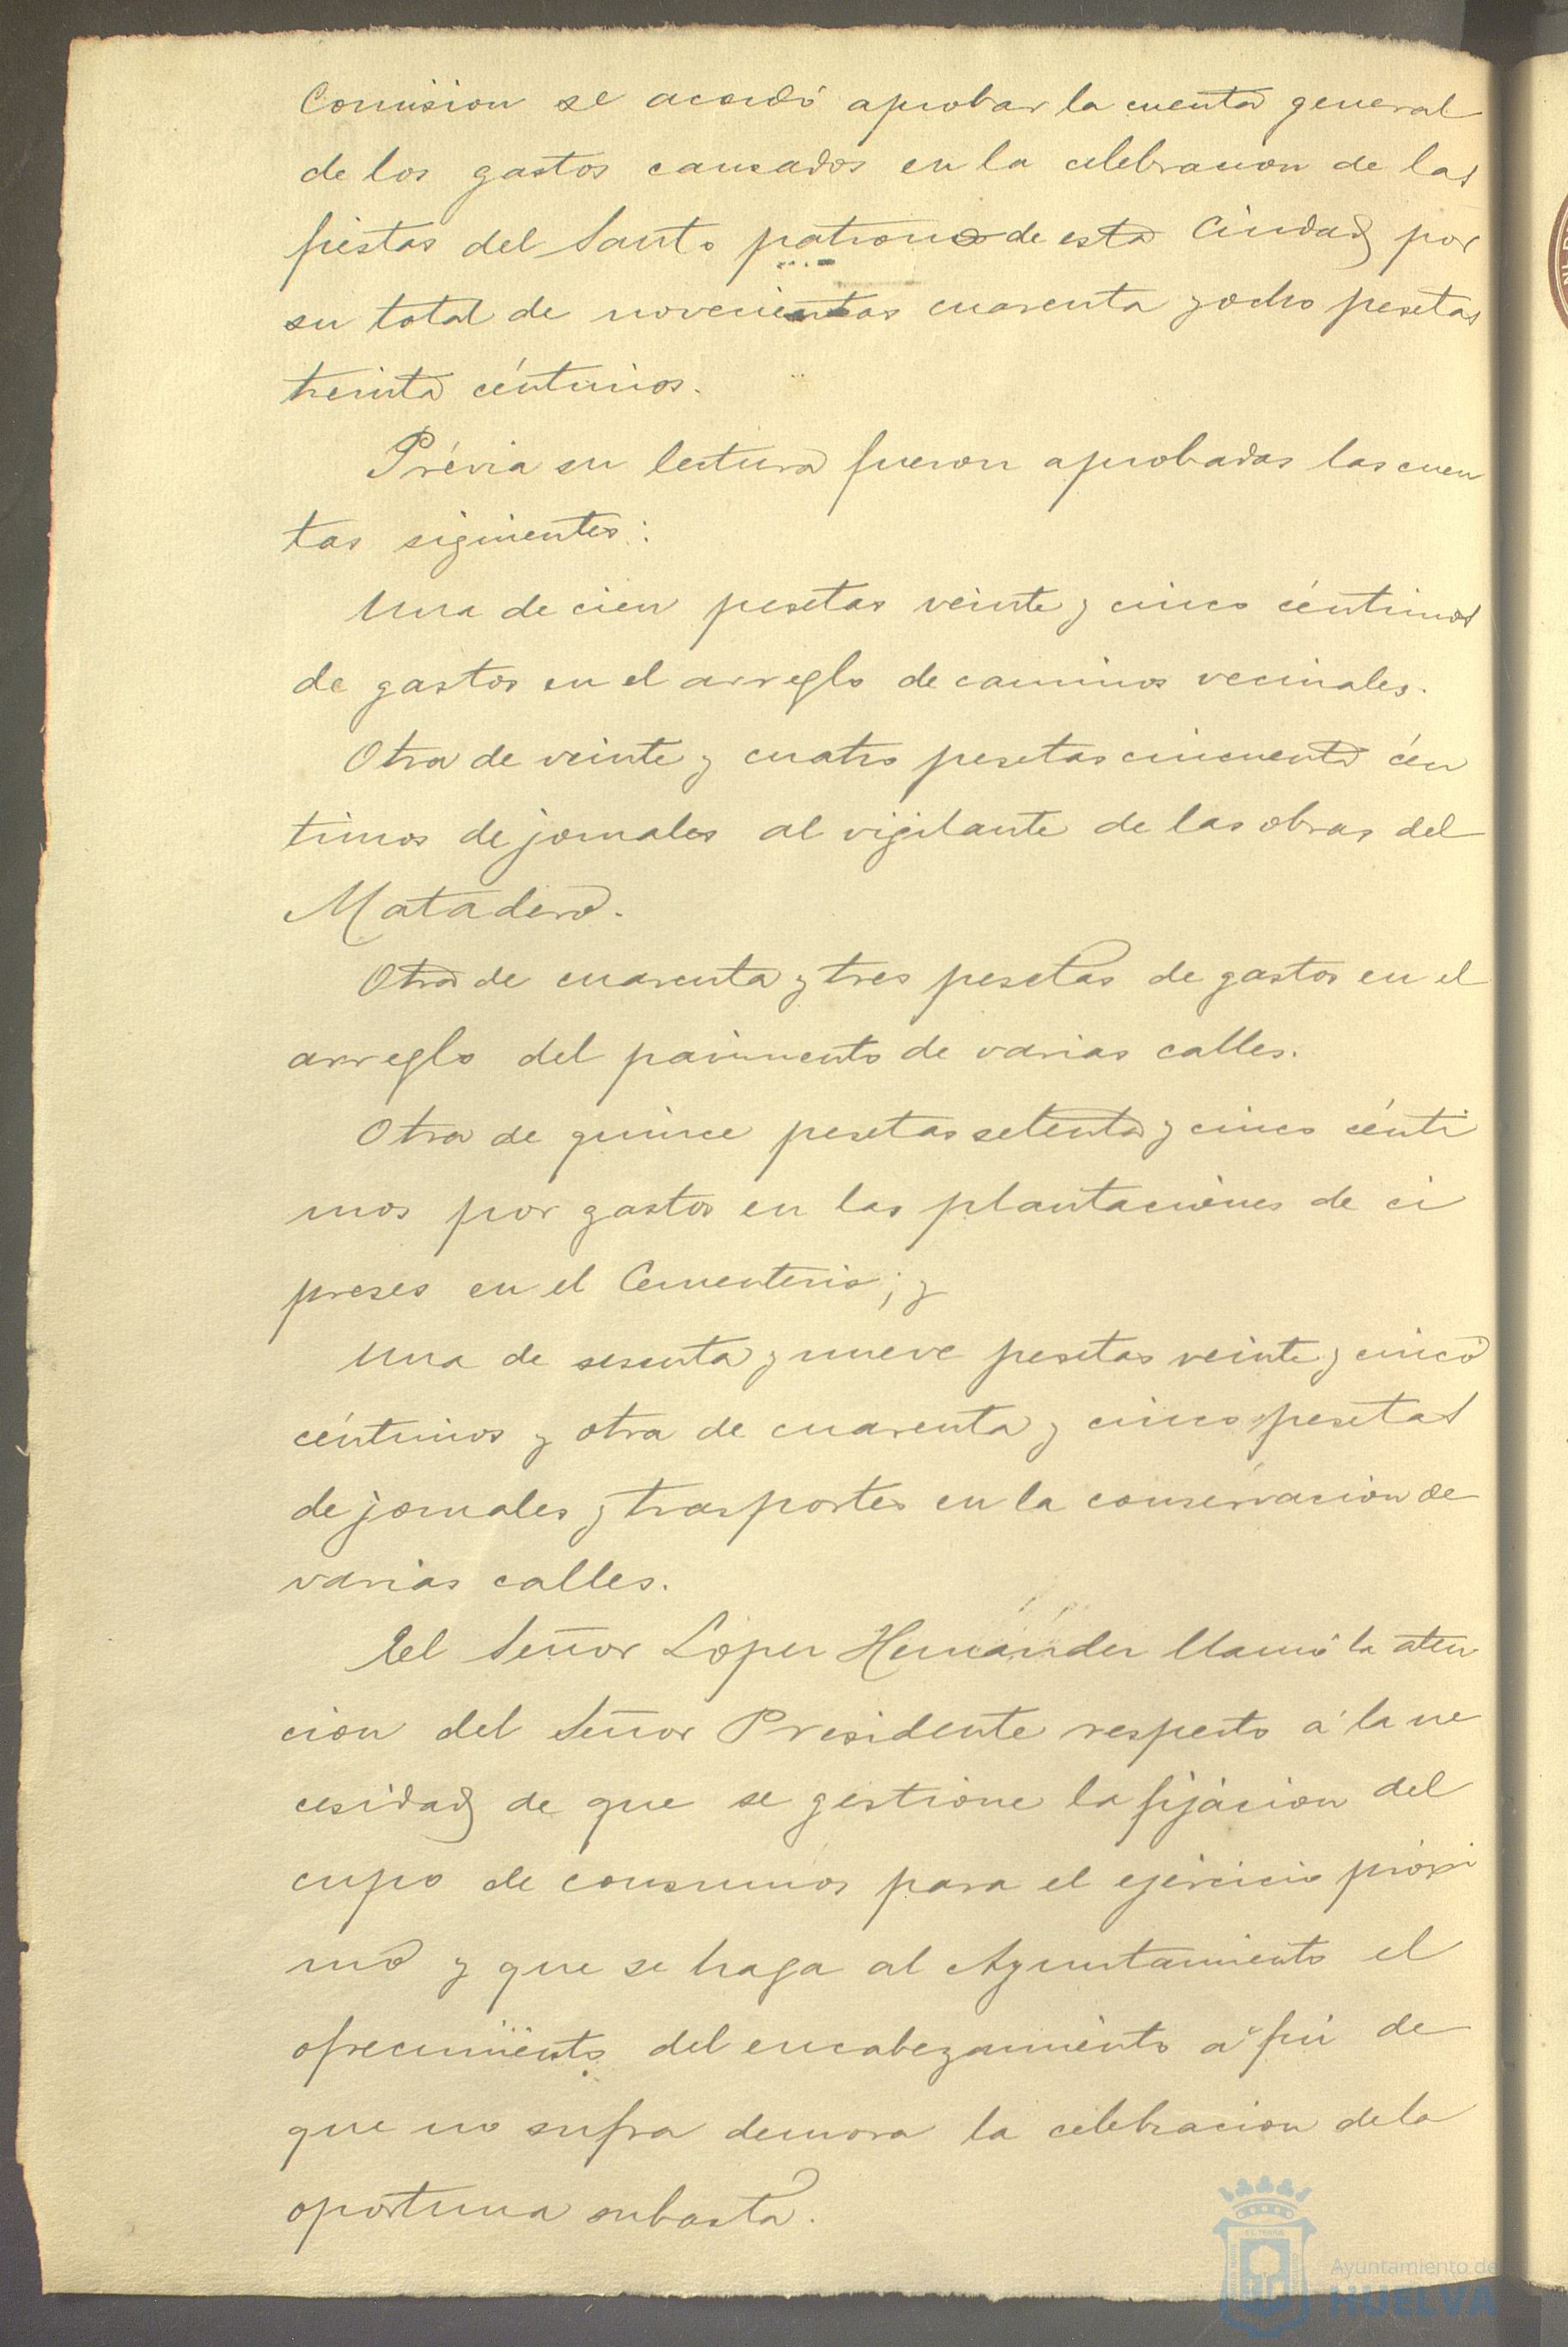 Comision se acordó aprobar la cuenta general
de los gastos causados en la celebracion de las
fiestas del Santo patrono de esta Ciudad por
su total de novecientas cuarenta y ocho pesetas
treinta céntimos.
Prévia su lectura fueron aprobadas las cuen
tas siguientes:
Una de cien pesetas veinte y cinco céntimos
de gastos en el arreglo de caminos vecinales.
Otra de veinte y cuatro pesetas cincuenta cén
timos de jornales al vigilante de las obras del
Matadero.
Otra de cuarenta y tres pesetas de gastos en el
arreglo del pavimento de varias calles.
Otra de quince pesetas setenta y cinco cénti
mos por gastos en las plantaciones de ci
preses en el Cementerio; y
Una de sesenta y nueve pesetas veinte y cinco
céntimos y otra de cuarenta y cinco pesetas
de jornales y trasportes en la conservacion de
varias calles.
El Señor Lopez Hernández llamó la aten
cion del Señor Presidente respecto á la ne
cesidad de que se gestione la fijacion del
cupo de consumos para el ejercicio próxi
mo y que se haga al Ayuntamiento el
ofrecimiento del encabezamiento á fin de
que no sufra demora la celebracion de la
oportuna subasta.
Ayuntamiento de
HUELVA